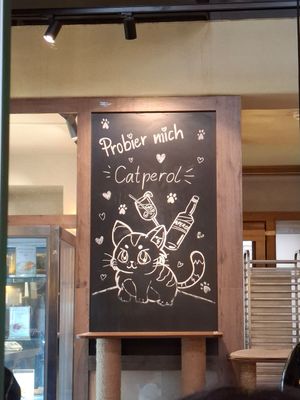 Probier miich
Catperol